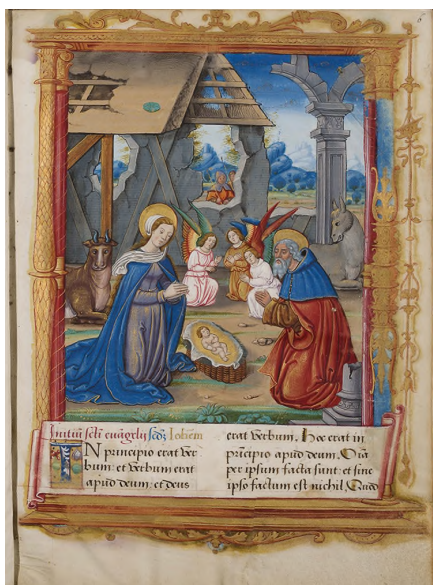 Initiũ sctĩ euãgelij scd̃z Iohem
IN principio erat ver
bum: et verbum erat
apud deum: et deus
erat verbum. Hoc erat in
prĩcipio apud deum. Oĩa
per ipsum facta sunt: et sine
ipso factum est nichil. Quod
6